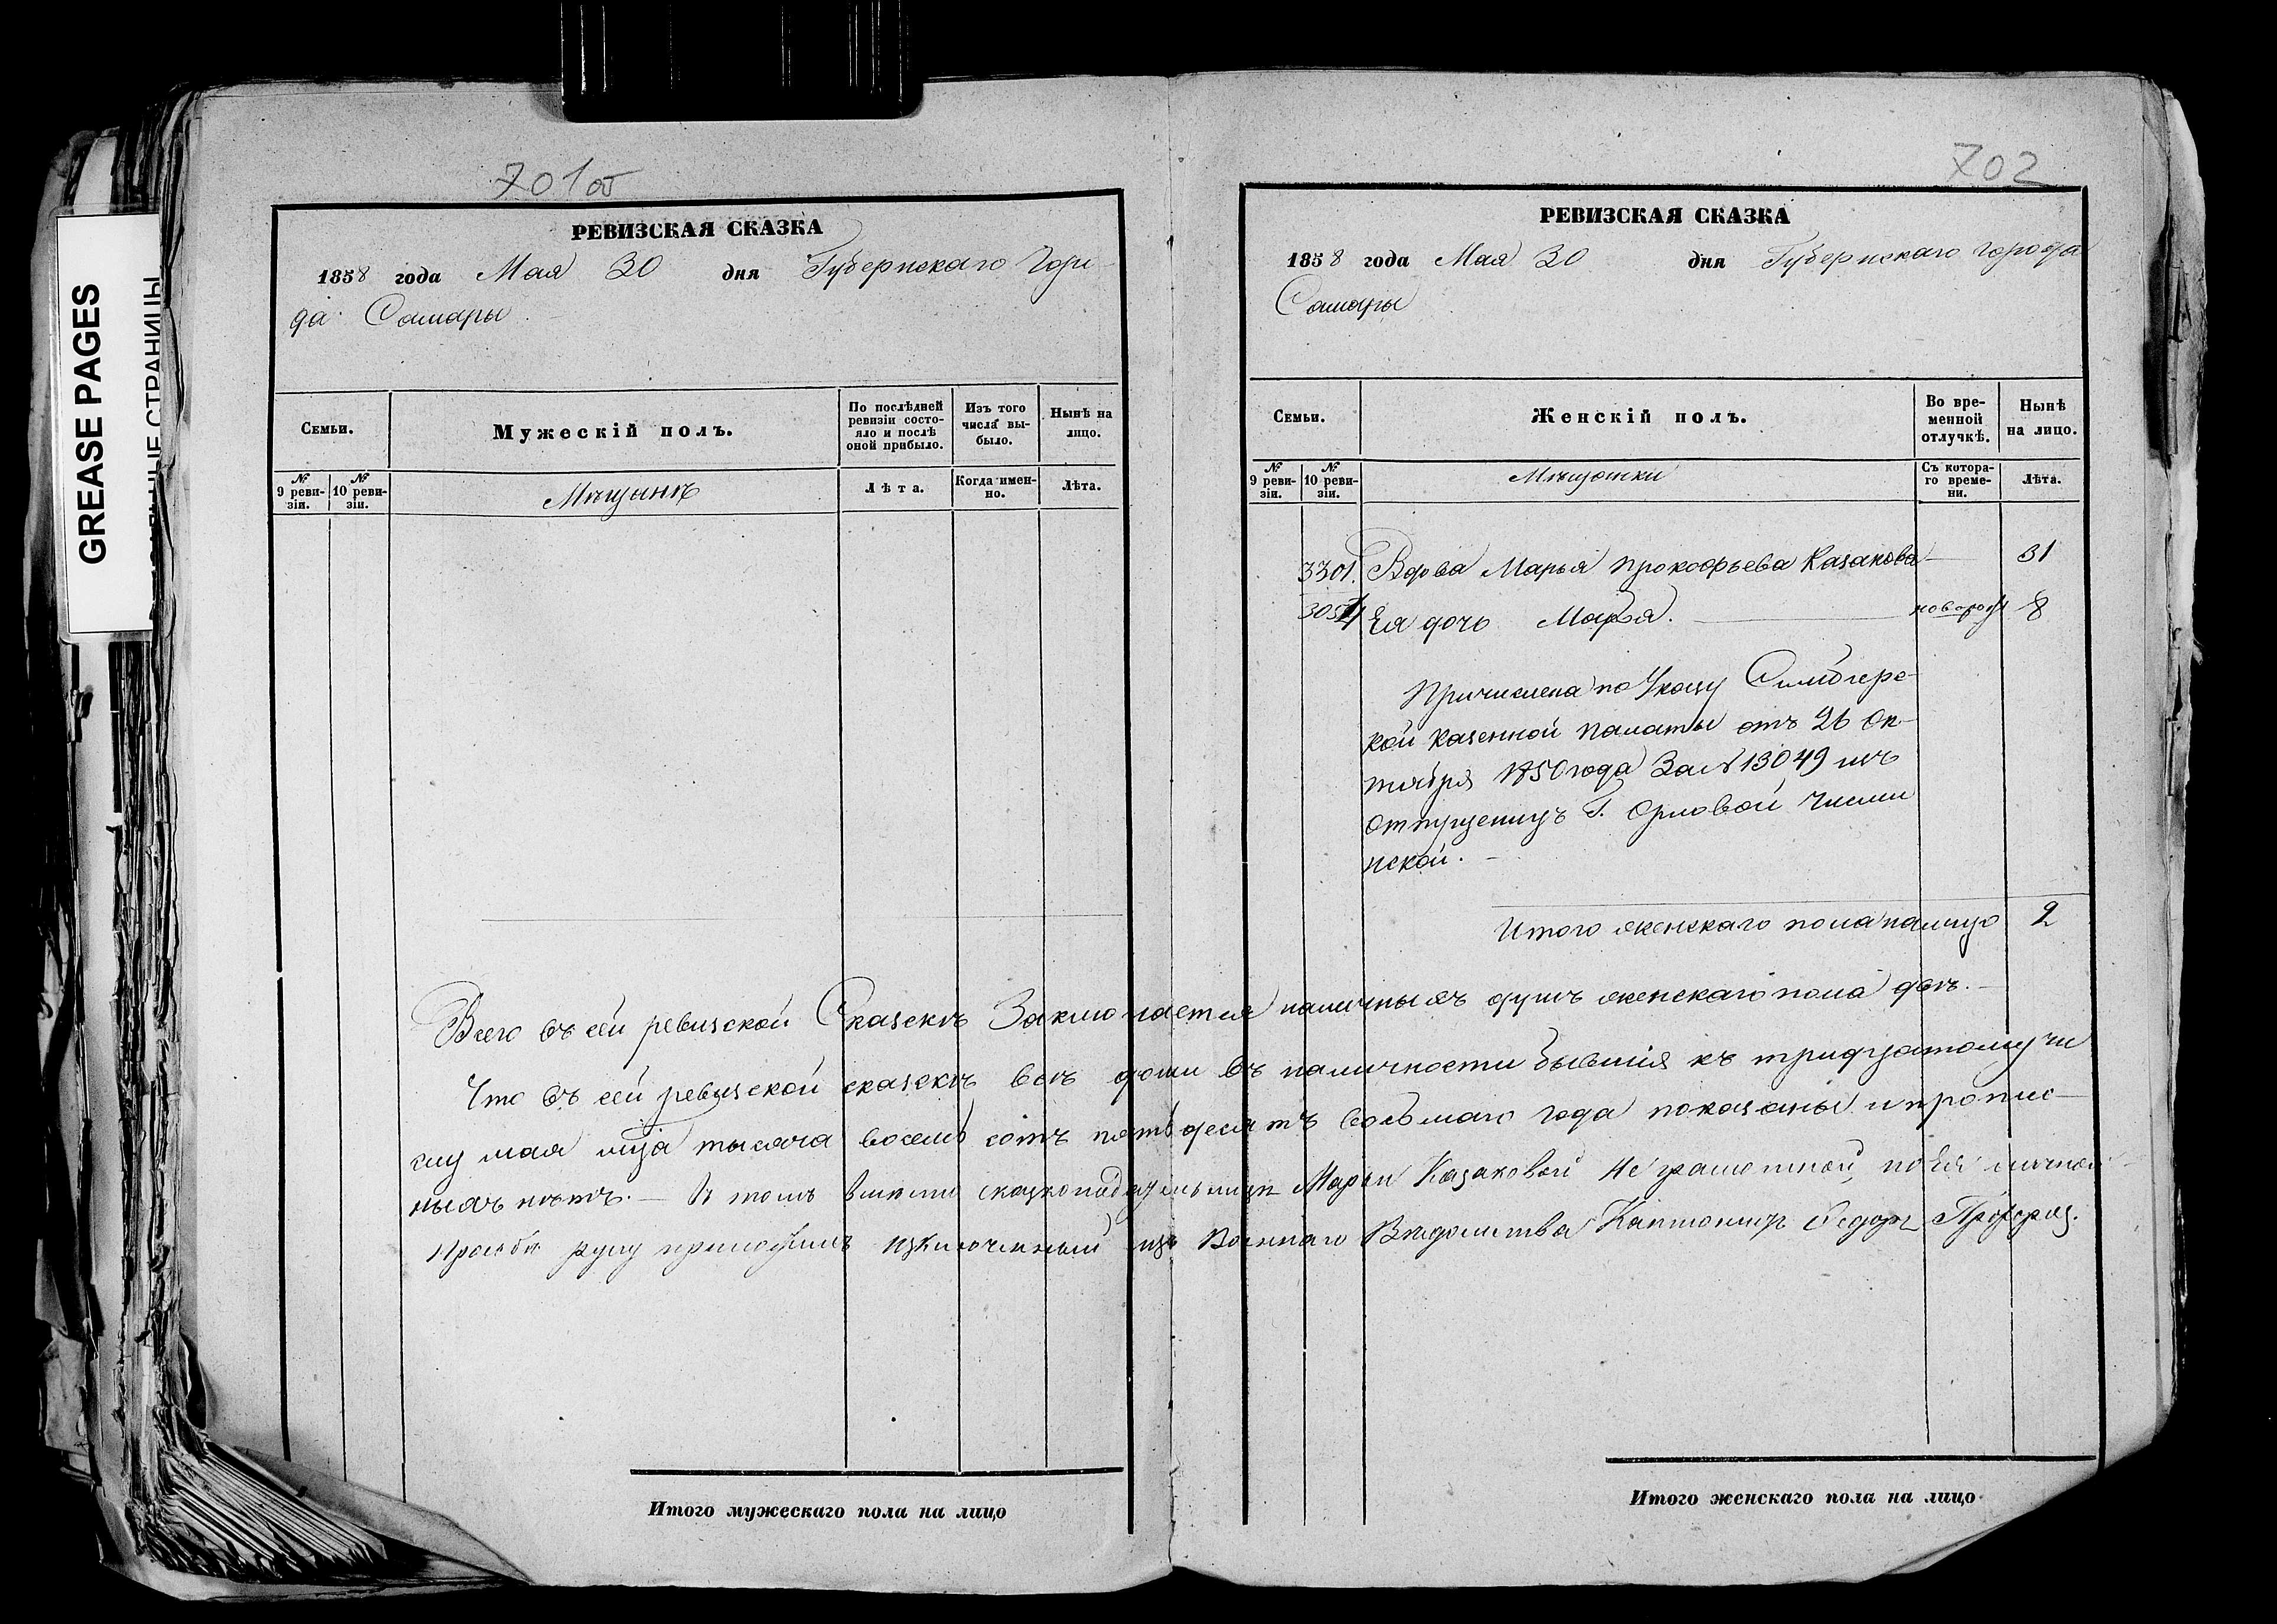 GREASE PAGES
701об
РЕВИЗСКАЯ СКАЗКА
1858 года Мая 30 дня Губернскаго Горо
да Самары
Семьи.
Мужескій полъ.
По послѣдней
ревизіи состо-
яло и послѣ
оной прибыло.
Изъ того
числа вы-
было.
Нынѣ на
лицо.
№
9 реви-
зіи.
№
10 реви-
зіи.
Мѣщынъ
Лѣта.
Когда имен-
но.
Лѣта.
702
РЕВИЗСКАЯ СКАЗКА
1858 года Мая 30 дня Губернскаго города
Самары
Семьи.
Женскій полъ.
Во вре-
менной
отлучкѣ.
Нынѣ
на лицо.
№
9 реви-
зіи.
№
10 реви-
зіи.
Мѣщанки
Съ котора-
го време-
ни.
Лѣта.
3301. Вдова Марья Прокофьева Казакова — 31
Ея дочь Марья. — 8
Причислена по Указу Симбирс-
кой казенной палаты отъ 26 Ок-
тября 1850 года За № 13049 изъ
отпущенныхъ Г. Орловой Чесмен
ской. —
Итого женскаго пола налицо 2
Всего въ сей ревизской Сказкѣ Заключается наличныхъ душъ женскаго пола двѣ. —
Что въ сей ревизской сказкѣ всѣ души въ наличности бывшія къ тридцатому чи
слу мая мца тысяча восемь сотъ пятьдесятъ восьмаго года показаны и пропис-
ныхъ нѣтъ. — В томъ вместо сказкоподательницы Марьи Казаковой не грамотной, по Ея личной
просьбѣ руку приложилъ изключенный изъ Военнаго Вѣдомства Кантонистъ Федоръ
Итого мужескаго пола на лицо
Итого женскаго пола на лицо